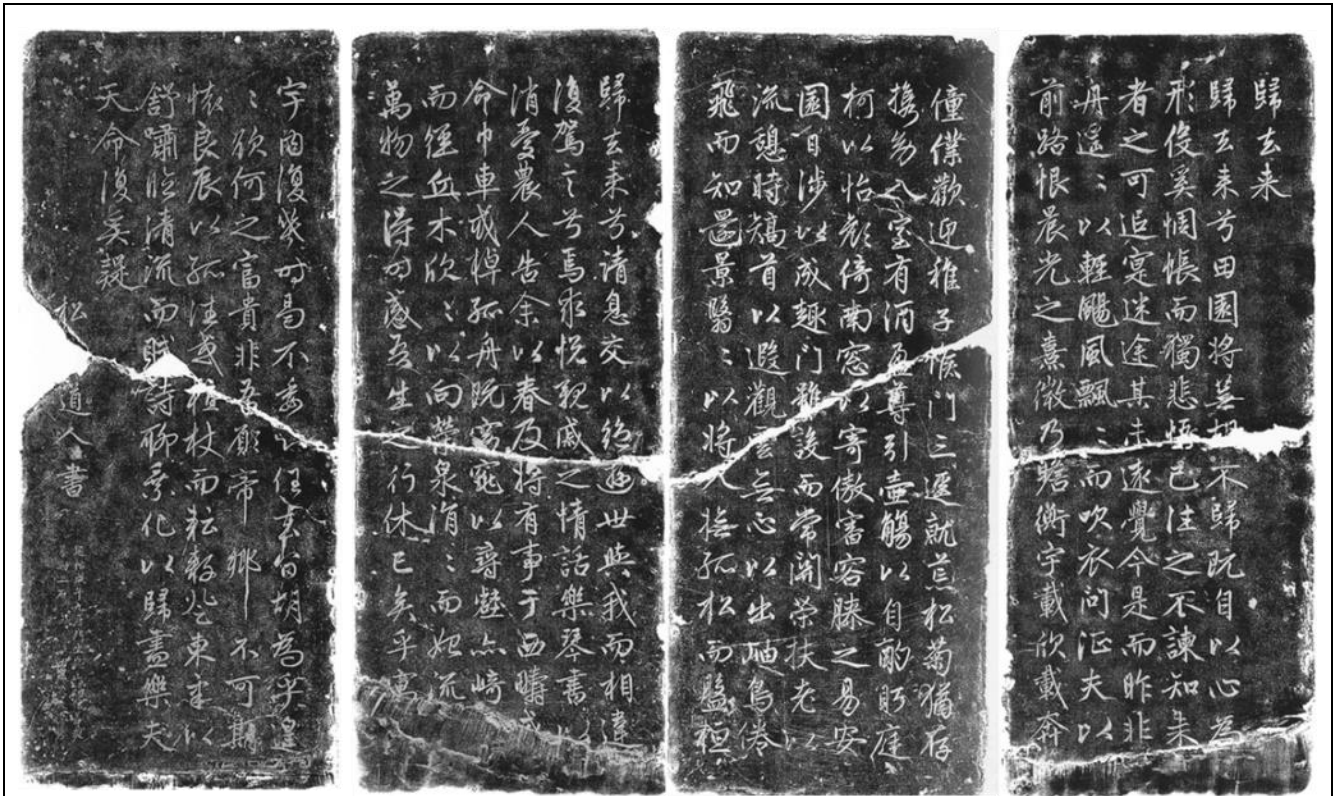 歸去来
歸去来兮田園将蕪胡不歸既自以心為
形役奚惆悵而獨悲悟已往之不諫知来
者之可追寔迷途其未遠覺今是而昨非
舟遥〻以輕颺風飄〻而吹衣问征夫以
前路恨晨光之熹微乃瞻衡宇載欣載奔
僮僕歡迎稚子候门三逕就荒松菊猶存
携幼入室有酒盈尊引壺觴以自酌眄庭
柯以怡顔倚南窓以寄傲審容膝之易安
園日涉以成趣门雖設而常関策扶老以
流憩時矯首以遐觀雲無心以出岫鳥倦
飛而知還景翳〻以将入撫孤松而盤桓
歸去来兮请息交以绝遊世與我而相違
復駕言兮焉求悦親戚之情話樂琴書以
消憂農人告余以春及将有事于西疇或
命巾車或棹孤舟既窈窕以尋壑亦崎
而經丘木欣〻以向榮泉涓〻而始流
萬物之得时感吾生之行休已矣乎寓
宇内復幾时曷不委心任去留胡為乎遑
〻欲何之富貴非吾願帝鄉不可期
懐良辰以孤往或植杖而耘耔登東皋以
舒嘯临清流而賦詩聊乘化以歸盡樂夫
天命復奚疑
松道人書